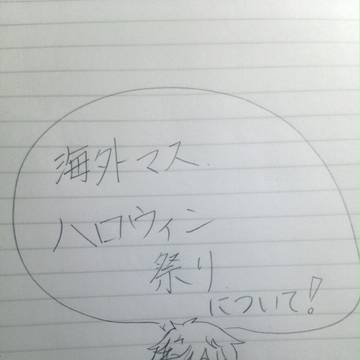 海外マス
ハロウィン
祭り
について!